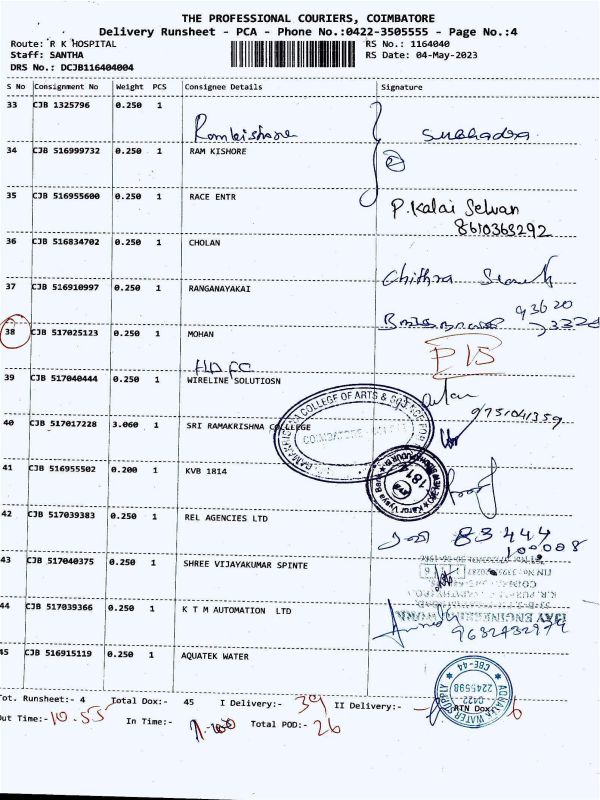 THE PROFESSIONAL COURIERS, COIMBATORE
Delivery Runsheet - PCA - Phone No.:0422-3505555 - Page No.:4
Route: R K HOSPITAL RS No.: 1164040
Staff: SANTHA RS Date: 04-May-2023
DRS No.: DCJB116404004
S No Consignment No Weight PCS Consignee Details Signature
33 CJB 1325796 0.250 1
Ramkishore Subhadra
34 CJB 516999732 0.250 1 RAM KISHORE 2
35 CJB 516955600 0.250 1 RACE ENTR P. Kalai Selvan
8610369292
36 CJB 516834702 0.250 1 CHOLAN
Chithra
37 CJB 516910997 0.250 1 RANGANAYAKAI
93620
38 CJB 517025123 0.250 1 MOHAN
HDFC
39 CJB 517040444 0.250 1 WIRELINE SOLUTIOSN
9751041359
40 CJB 517017228 3.060 1 SRI RAMAKRISHNA COLLEGE
COLLEGE OF ARTS & SCIENCE FOR
COIMBATORE
41 CJB 516955502 0.200 1 KVB 1814
Karur Vysya Bank
1814
42 CJB 517039383 0.250 1 REL AGENCIES LTD
83444
100008
43 CJB 517040375 0.250 1 SHREE VIJAYAKUMAR SPINTE
44 CJB 517039366 0.250 1 K T M AUTOMATION LTD
9632432974
45 CJB 516915119 0.250 1 AQUATEK WATER
AQUATEK WATER SUPPLY
0422
2245598
CBE-44
Tot. Runsheet:- 4 Total Dox:- 45 I Delivery:- 39 II Delivery:- RTN Dox:- 6
Out Time:- 10.55 In Time:- Total POD:- 26